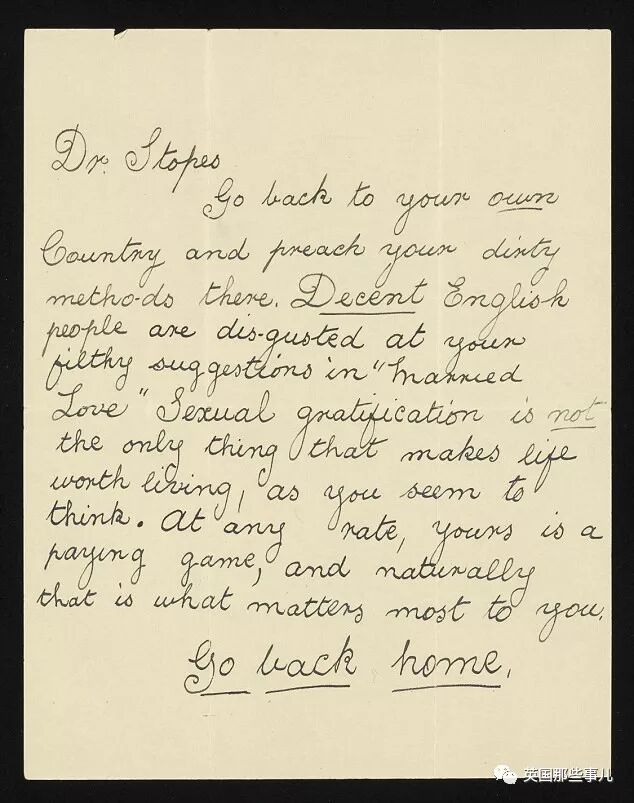 Dr. Stopes
Go back to your own
Country and preach your dirty
metho-ds there. Decent English
people are dis-gusted at your
filthy suggestions in "Married
Love" Sexual gratification is not
the only thing that makes life
worth living, as you seem to
think. At any rate, yours is a
paying game, and naturally
that is what matters most to you.
Go back home.
英国那些事儿